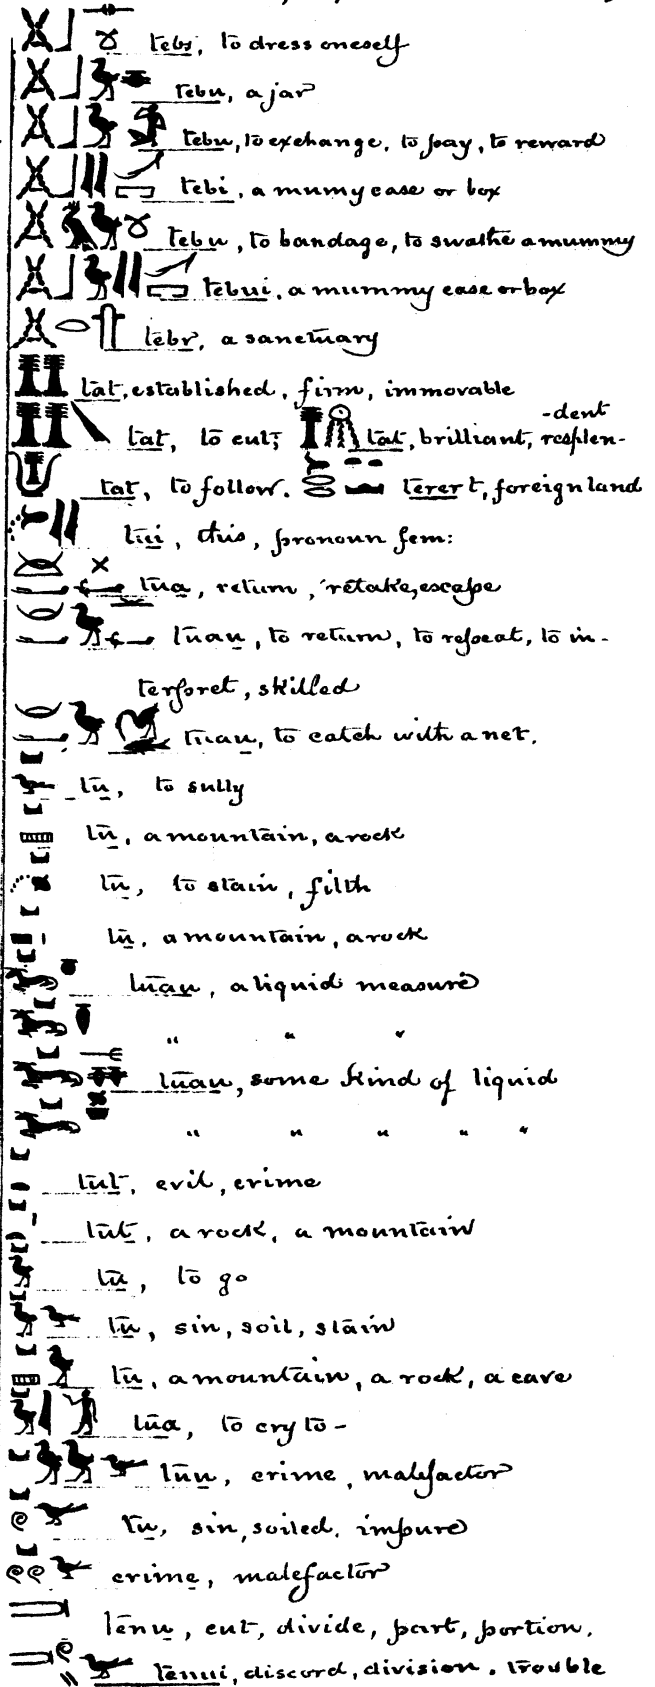 tebs, to dress oneself
tebu, a jar
tebu, to exchange, to pay, to reward
tebi, a mumy case or box
tebu, to bandage, to swathe a mummy
tebui, a mummy case or box
tebr, a sanctuary
tat, established, firm, immovable
tat, to cut; tat, brilliant, resplen-
-dent
tat, to follow. terert, foreign land
tui, this, pronoun fem:
tua, return, retake, escape
tuau, to return, to repeat, to in-
terpret, skilled
tuau, to catch with a net.
tu, to sully
tu, a mountain, a rock
tu, to stain, filth
tu, a mountain, a rock
tuau, a liquid measure
" " "
tuau, some kind of liquid
" " " " "
tut, evil, crime
tut, a rock, a mountain
tu, to go
tu, sin, soil, stain
tu, a mountain, a rock, a cave
tua, to cry to-
tuu, crime, malefactor
tu, sin, soiled, impure
crime, malefactor
tenu, cut, divide, part, portion,
tenui, discord, division. trouble